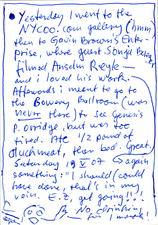 Yesterday I went to the
NYCOO.com gallery (hmm,
then to Gavin Brown's Enter
prise, where guest Sonja
filmed Anselm Reyle —
and I loved his work.
Afterwards I meant to go to
the Bowery Ballroom (was
never there) to see Genesis
P. Orridge, but was too
tired. Ate 1/2 pound of
, then bed. Great.
Saturday, 19 X 07 → again
something: "I should/could
have done, that's in my
voice. E.Z., get going!!
No